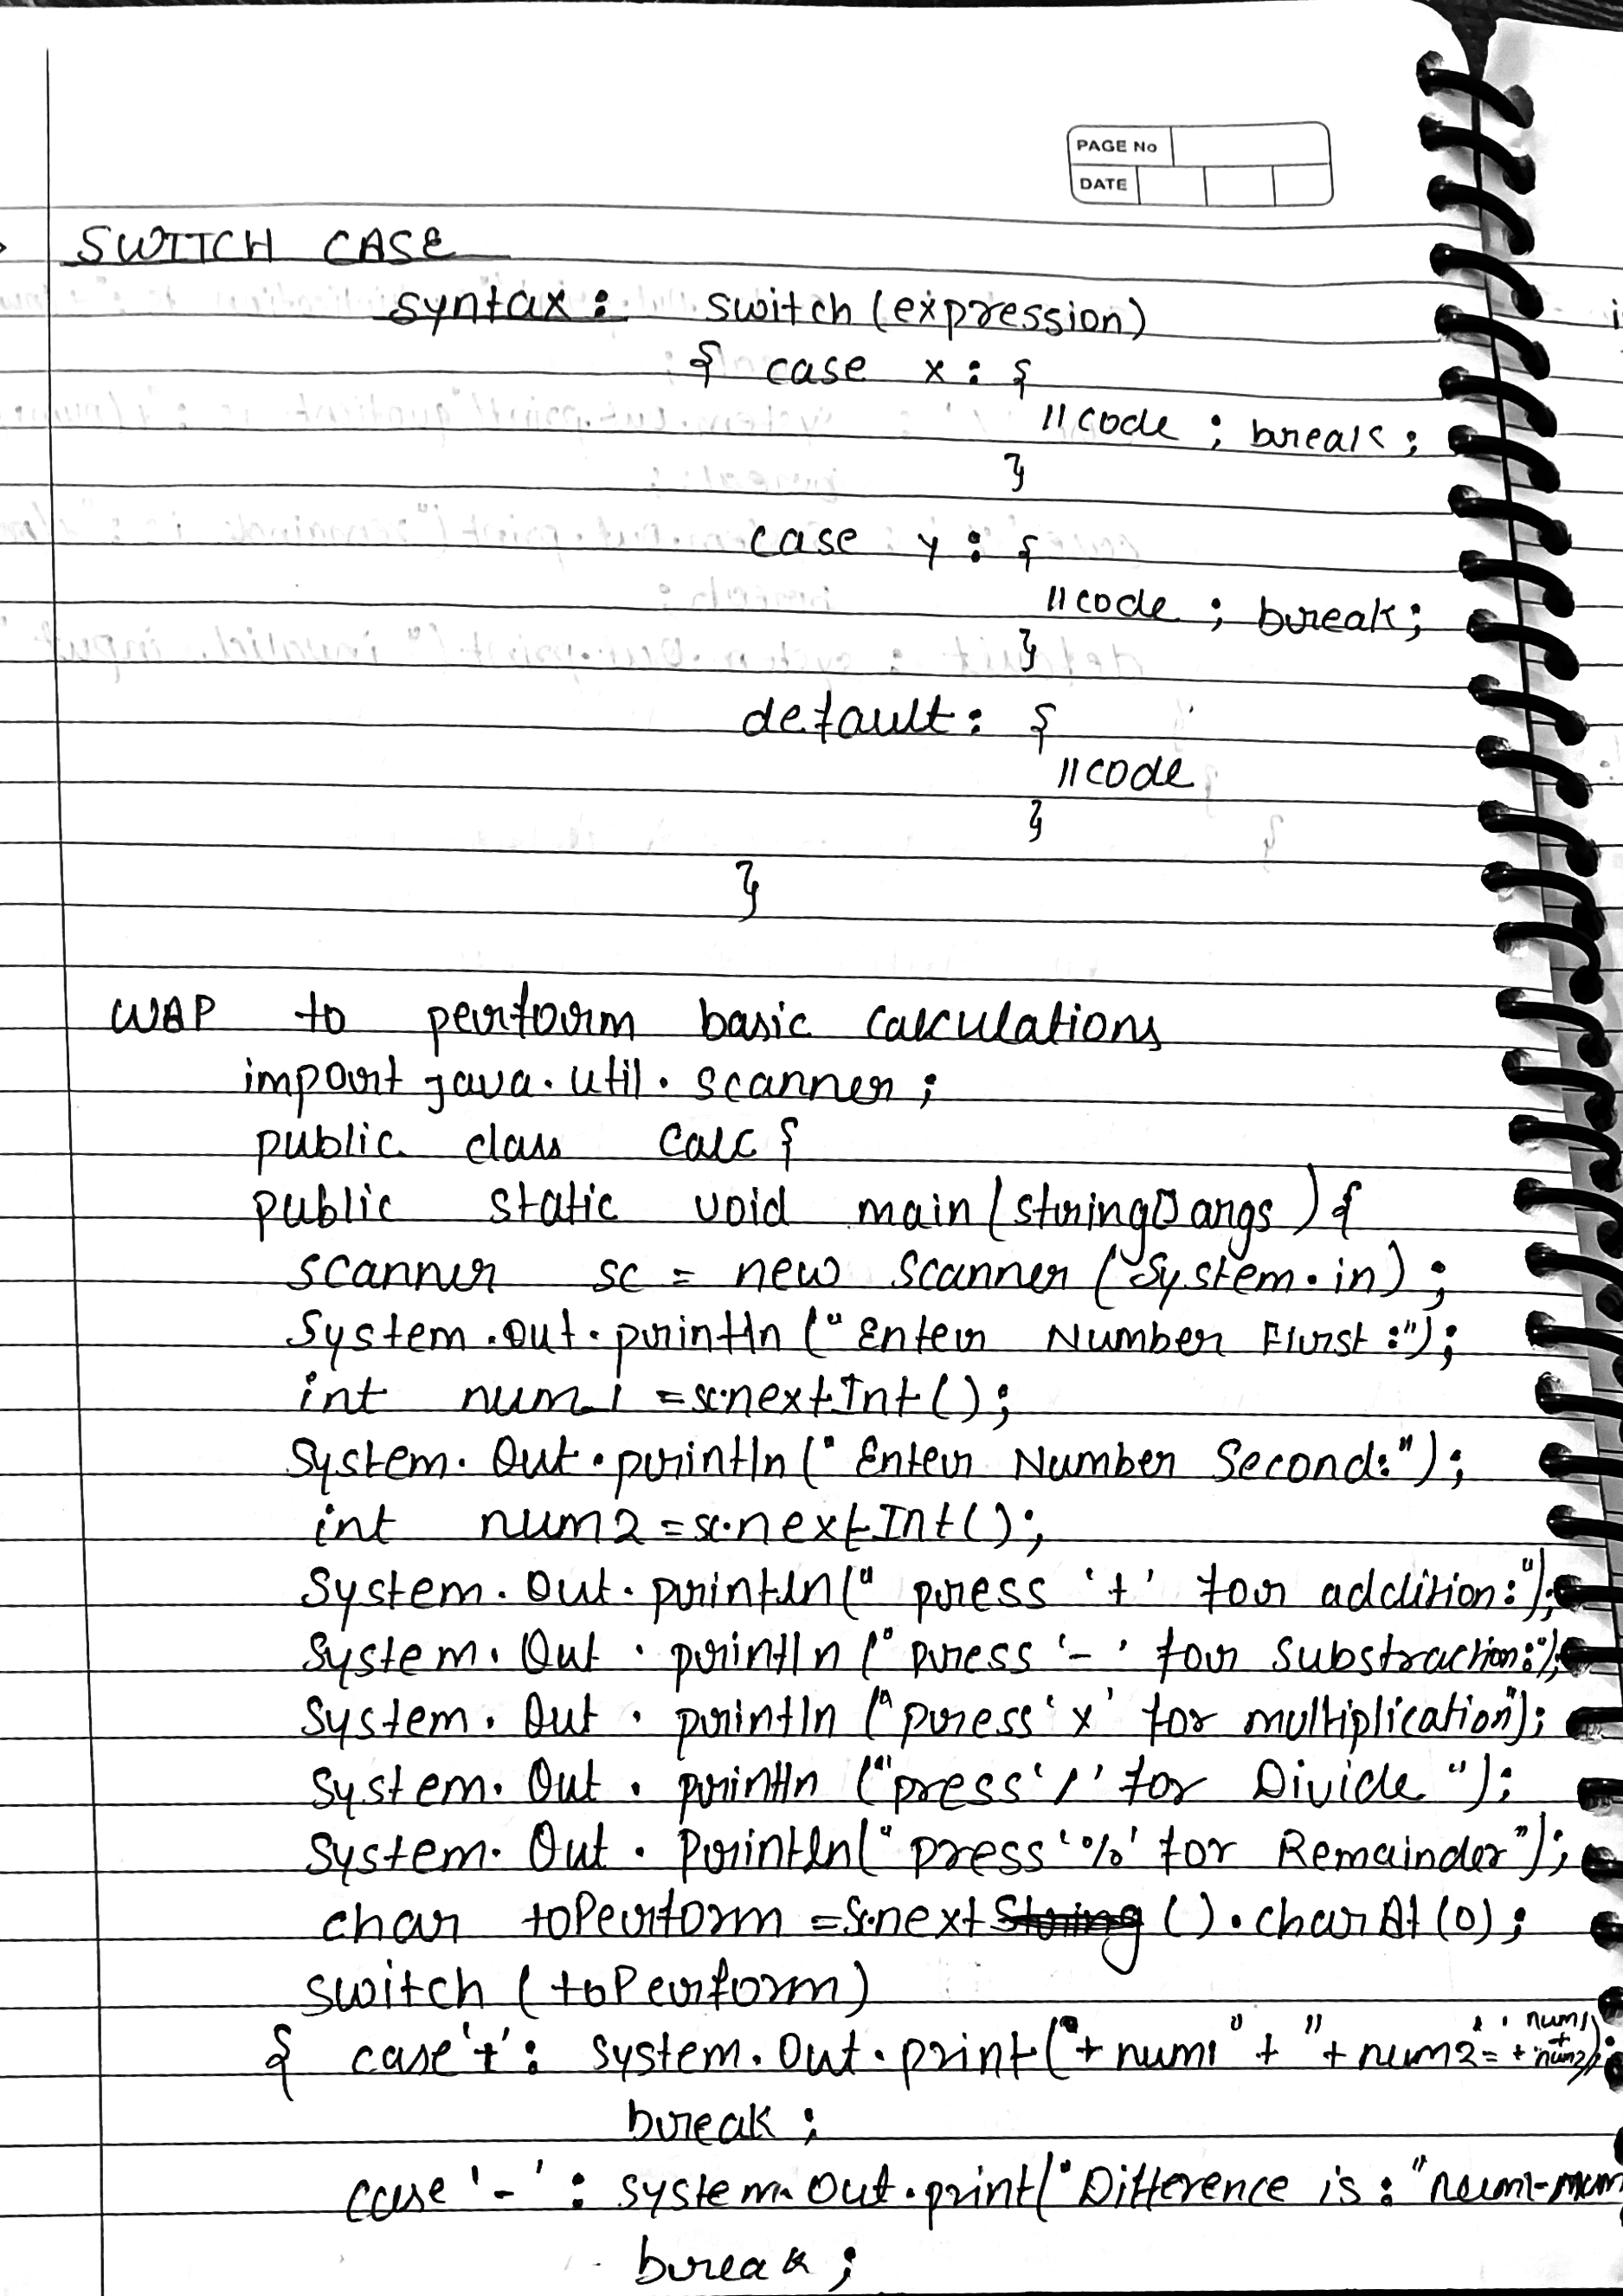 PAGE No
DATE
SWITCH CASE
syntax: switch (expression)
{ case x: {
//code ; break;
}
case y: {
//code ; break;
}
default: {
//code
}
}
WAP to perform basic calculations
import java.util.scanner;
public class Calc {
public static void main(string[] args) {
scanner sc = new scanner (System.in);
System.out.println ("Enter Number First:");
int num1 =sc.nextInt();
System.Out.println ("Enter Number Second:");
int num2 =sc.nextInt();
System.Out.println(" press '+' for addition:");
System.Out.println ("press '-' for Substraction:");
System.Out.println ("press 'x' for multiplication");
System.Out.println ("press '/' for Divide ");
System.Out.println("press '%' for Remainder");
char toPerform =Sc.next String ().charAt(0);
switch (toPerform)
{ case '+': system.Out.print("+ num1 "+ "+ num2 = + num1 + num2);
break;
case '-': system.Out.print("Difference is: "num1-num
break;